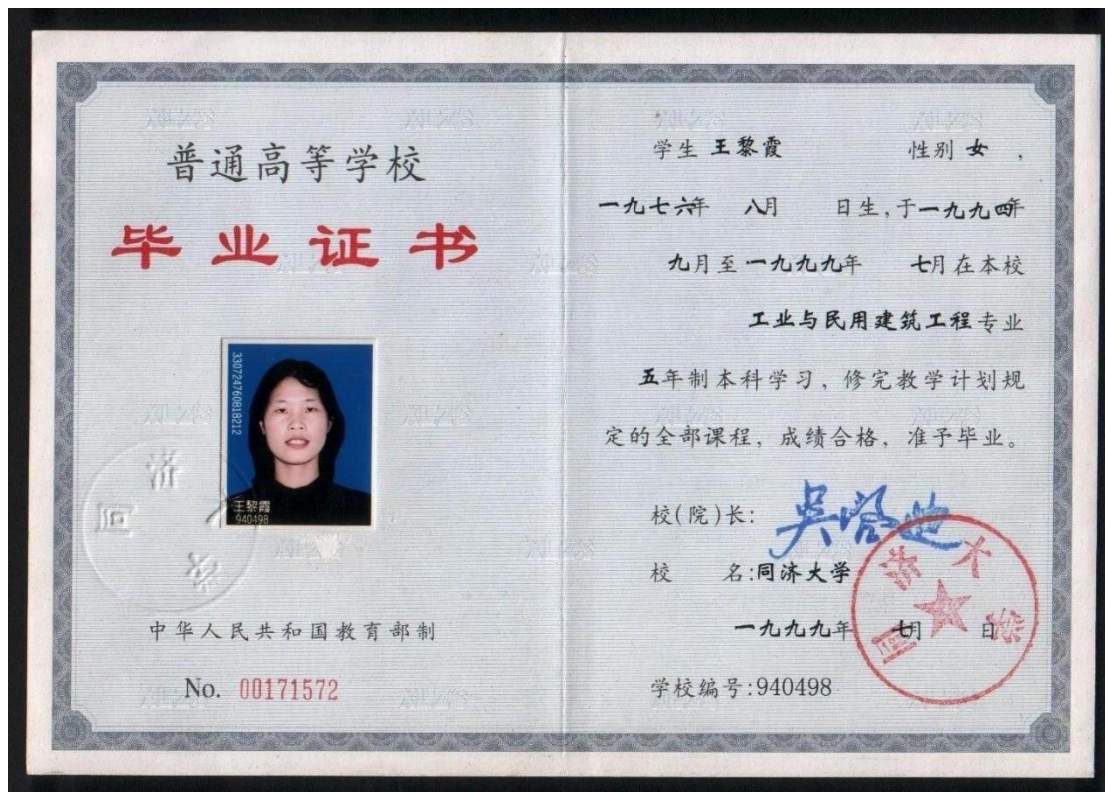 普通高等学校
毕业证书
330724760818212
王黎霞
940498
同济大学
中华人民共和国教育部制
No. 00171572
学生 王黎霞 性别 女 ,
一九七六年 八月 日生,于一九九四年
九月至一九九九年 七月在本校
工业与民用建筑工程专业
五年制本科学习，修完教学计划规
定的全部课程，成绩合格，准予毕业。
校(院)长:
校 名:同济大学
一九九九年 七月 日
学校编号:940498
同济大学